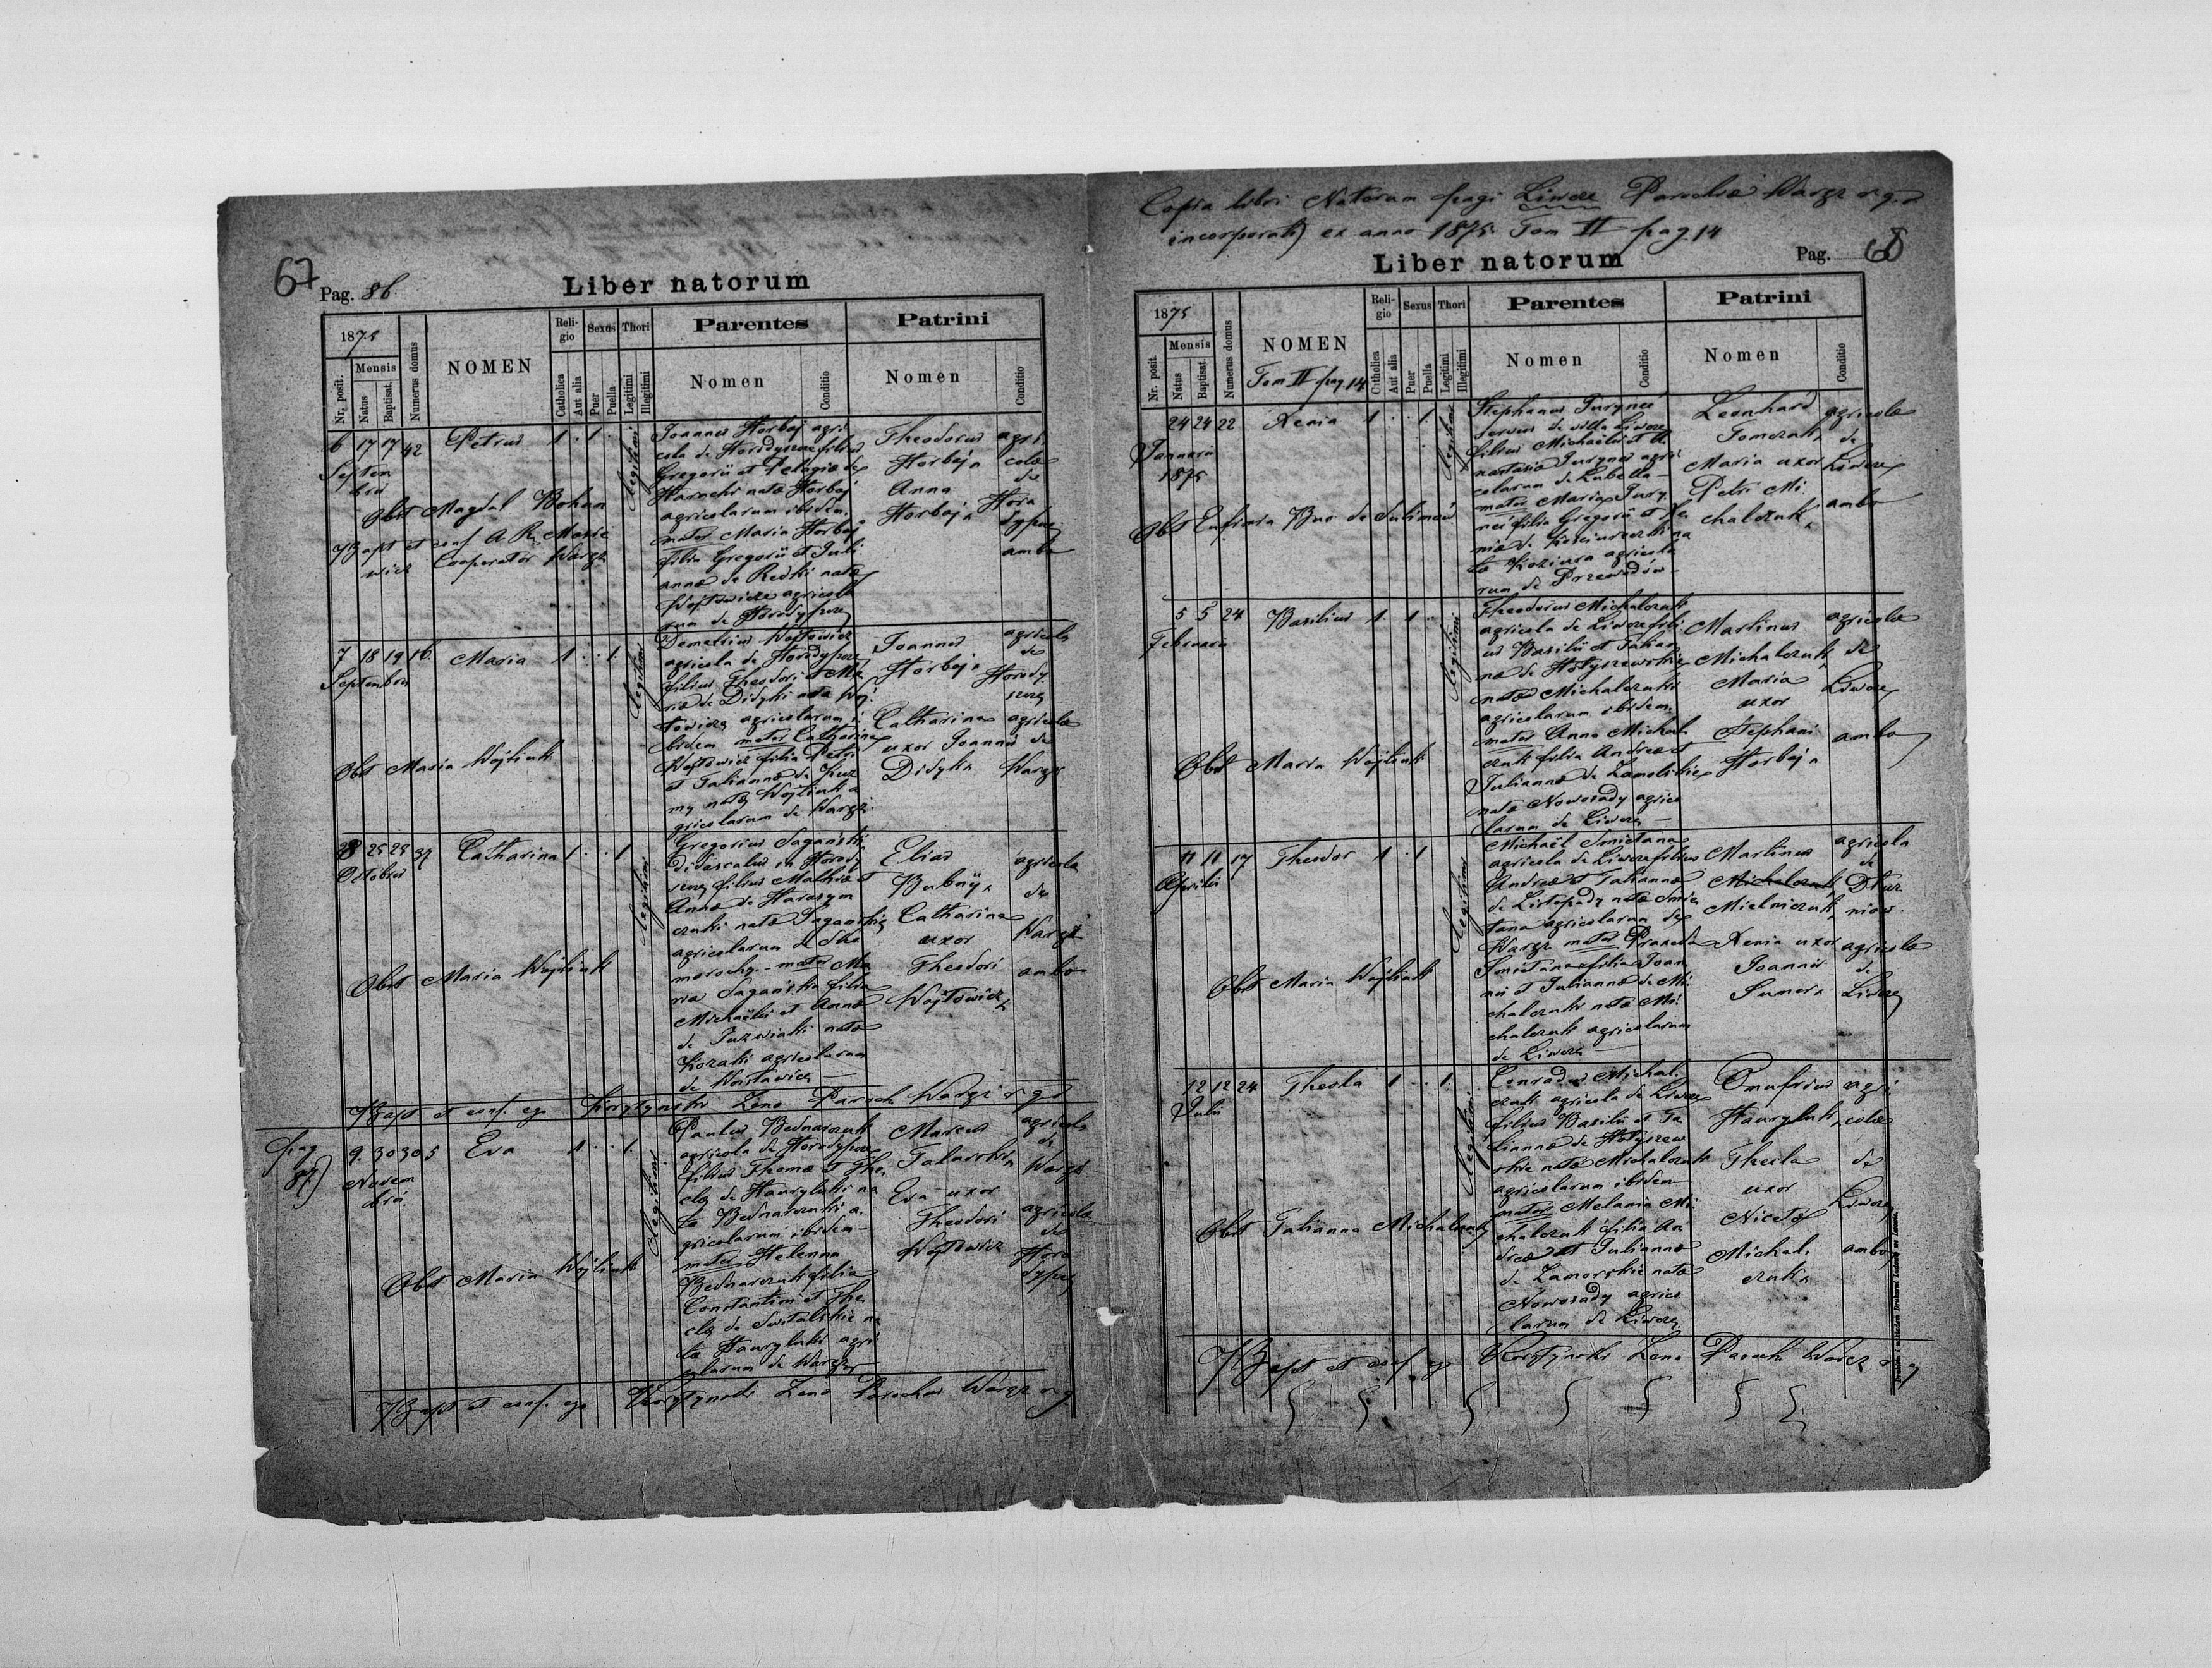 67
Pag. 86
Liber natorum
1875
Nr. posit.
Mensis
Natus
Baptisat.
Numerus domus
NOMEN
Religio
Catholica
Aut alia
Sexus
Puer
Puella
Thori
Legitimi
Illegitimi
Parentes
Nomen
Conditio
Patrini
Nomen
Conditio
6 17 17 42 Petrus 1 . 1 .
Septem
bris
Legitimi
Joannes Horbaj agri
cola de Horodyszcze filius
Gregorii et Pelagiæ de
natæ Horbaj
agricolarum ibidem.
mater Maria Horbaj
filia Gregorii et Juli
annæ de Redki natæ
Wojtowicz agricola
rum de Horodyszcze
Theodorus
Horbaj
Anna
Horbaj
agri
colæ
de
Horo
dyszcze
ambo
Obst Magdal Bohun
Bapt et conf A. R.
Cooperator Waręż
7 18 19 16 Maria 1 . . 1
Septembris
Legitimi
Demetrius Wojtowicz
agricola de Horodyszcze
filius Theodori et Ma
riæ de Didyki nata Woj
towicz agricolarum i
bidem mater Catharina
Wojtowicz filia Petri
et Tatiannæ de Kuz
my natæ Wojtiuk a
gricolarum de Waręż
Joannes
Horbaj
Catharina
uxor Joannis
Didyk
agricola
de
Horody
szcze
agricola
de
Waręż
Obst Maria Wojtiuk
8 25 28 37 Catharina 1 . . 1
Octobris
Legitimi
Gregorius Sagański
Didascalus in Horody
szcze filius Mathiæ et
Annæ de Harasym
czuki natæ Saganskie
agricolarum de
mater Ma
ria Sagańska filia
Michaëlis et Annæ
de natæ
Kozaki agricolarum
de Wojsławice
Elias
Bubnij
Catharina
uxor
Theodori
Wojtowicz
agricola
de
Waręż
ambo
Obst Maria Wojtiuk
Bapt et conf. ego Korytynski Zeno Paroch Waręż r g
pag
87)
9. 30 30 5 Eva 1 . . 1
Novem
bris
Legitimi
Paulus Bednarczuk
agricola de Horodyszcze
filius Thomæ et The
clæ de Hauryluki na
tæ Bednarczuki a
gricolarum ibidem
mater Helenna
Bednarczuk filia
Constantini et The
clæ de Switalskie na
tæ Hauryluki agri
colarum de Waręż
Marcus
Tatarski
Eva uxor
Theodori
Wojtowicz
agricola
de
Waręż
agricola
de
Horo
dyszcze
Obst Maria Wojtiuk
Bapt et conf. ego Korytynski Zeno Parochus Waręż r g
Copia libri Natorum pagi Liwcze Parochiæ Waręż r. g.
incorporati) ex anno 1875 Tom II pag. 14
Liber natorum
Pag. 68
1875
Nr. posit.
Mensis
Natus
Baptisat.
Numerus domus
NOMEN
Tom II pag. 14
Religio
Catholica
Aut alia
Sexus
Puer
Puella
Thori
Legitimi
Illegitimi
Parentes
Nomen
Conditio
Patrini
Nomen
Conditio
24 24 22 Xenia 1 . . 1
Januarii
1875
Legitimi
Stephanus Jurynec
servus de villa Liwcze
filius Michaëlis et A
nastasiæ Jurynec agri
colarum de Lubella
mater Maria Jury
nec filia Gregorii et Xe
niæ de na
ta Koziura agricola
rum de Przewodów
Leonhard
Tomczuk
Maria uxor
Petri Mi
chalczuk
agricolæ
de
Liwcze
ambo
Obst Eufemia de Sulimów
5 5 24 Basilius 1 . 1 .
Februarii
Legitimi
Theodorus Michalczuk
agricola de Liwcze fili
us Basilii et Tatian
næ de Hołyszewskie
natæ Michalczuki
agricolarum ibidem
mater Anna Michal
czuk filia Andreæ et
Juliannæ de Zamolskie
natæ Nowosady agrico
larum de Liwcze
Martinus
Michalczuk
Maria
uxor
Stephani
Horbaj
agricolæ
de
Liwcze
ambo
Obst Maria Wojtiuk
11 11 17 Theodor 1 . 1
Aprilis
Legitimi
Michaël Smietana
agricola de Liwcze filius
Andreæ et Tatiannæ
de Listopady natæ Smie
tana agricolarum de
Waręż mater Praxeda
Smietana filia Joan
nis et Juliannæ de Mi
chalczuki natæ Mi
chalczuk agricolarum
de Liwcze
Martinus
Michalczuk
Mielniczuk
Xenia uxor
Joannis
Sumera
agricola
de
Dłuż
niów
agricola
de
Liwcze
Obst Maria Wojtiuk
12 12 24 Thecla 1 . . 1
Julii
Legitimi
Conradus Michal
czuk agricola de Liwcze
filius Basilii et Ta
tiannæ de Hołyszew
skie natæ Michalczuk
agricolarum ibidem
mater Melania Mi
chalczuk filia An
dreæ et Juliannæ
de Zamorskie natæ
Nowosady agrico
larum de Liwcze
Onufrius
Hauryluk
Thecla
uxor
Nicetæ
Michal
czuk
agri
colæ
de
Liwcze
ambo
Obst Tatianna Michalczuk
Bapt et conf ego Korytynski Zeno Paroch Waręż r g